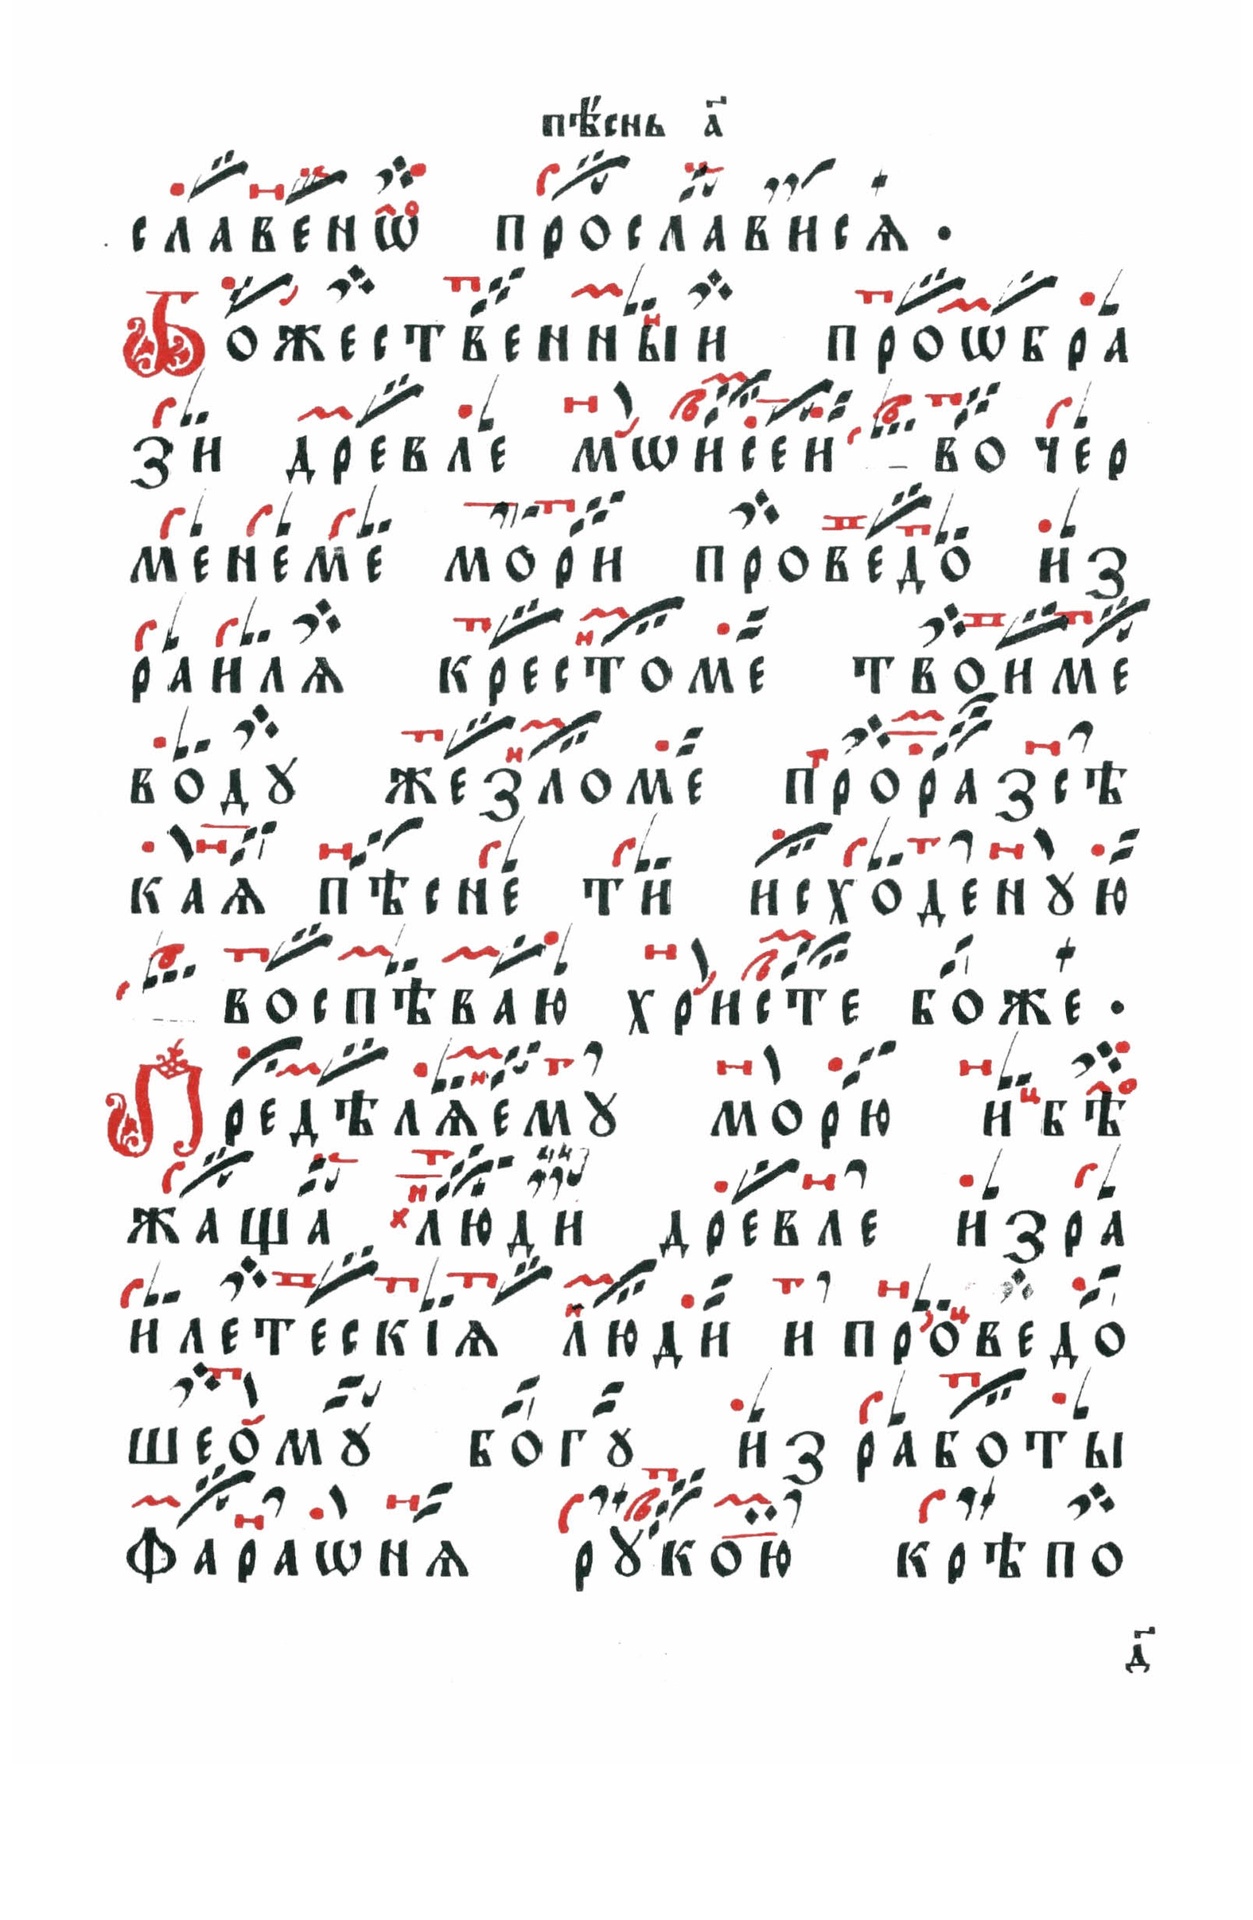 пѣснь а҃
славенѡ прославися.
Божественныи проѡбра
зи древле мѡисеи во чер
менеме мори проведо из
раиля крестоме твоиме
воду жезломе проразсѣ
кая пѣсне ти исходеную
воспѣваю христе боже.
Предѣляему морю и бѣ
жаща люди древле изра
илетескія люди и проведо
шеому богу из работы
фараѡня рукою крѣпо
д҃